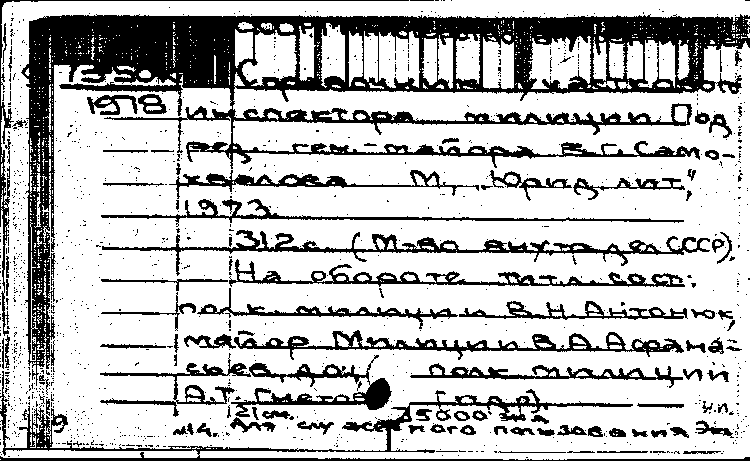 СССР Министерство внутренних дел
1350к Справочник участкового
1978 инспектора милиции. Под
ред. ген.-майора В.Г. Само-
хвалова М., „Юрид. лит",
1973.
312 с. (М-во внутр. дел СССР).
На обороте тит. л. сост.:
полк. милиции В.Н. Антонюк,
майор Милиции В.А. Афана-
сьев, доц. полк милиции
А.Т. [и др.]
21 см. 45000 экз
Для служебного пользования Экз